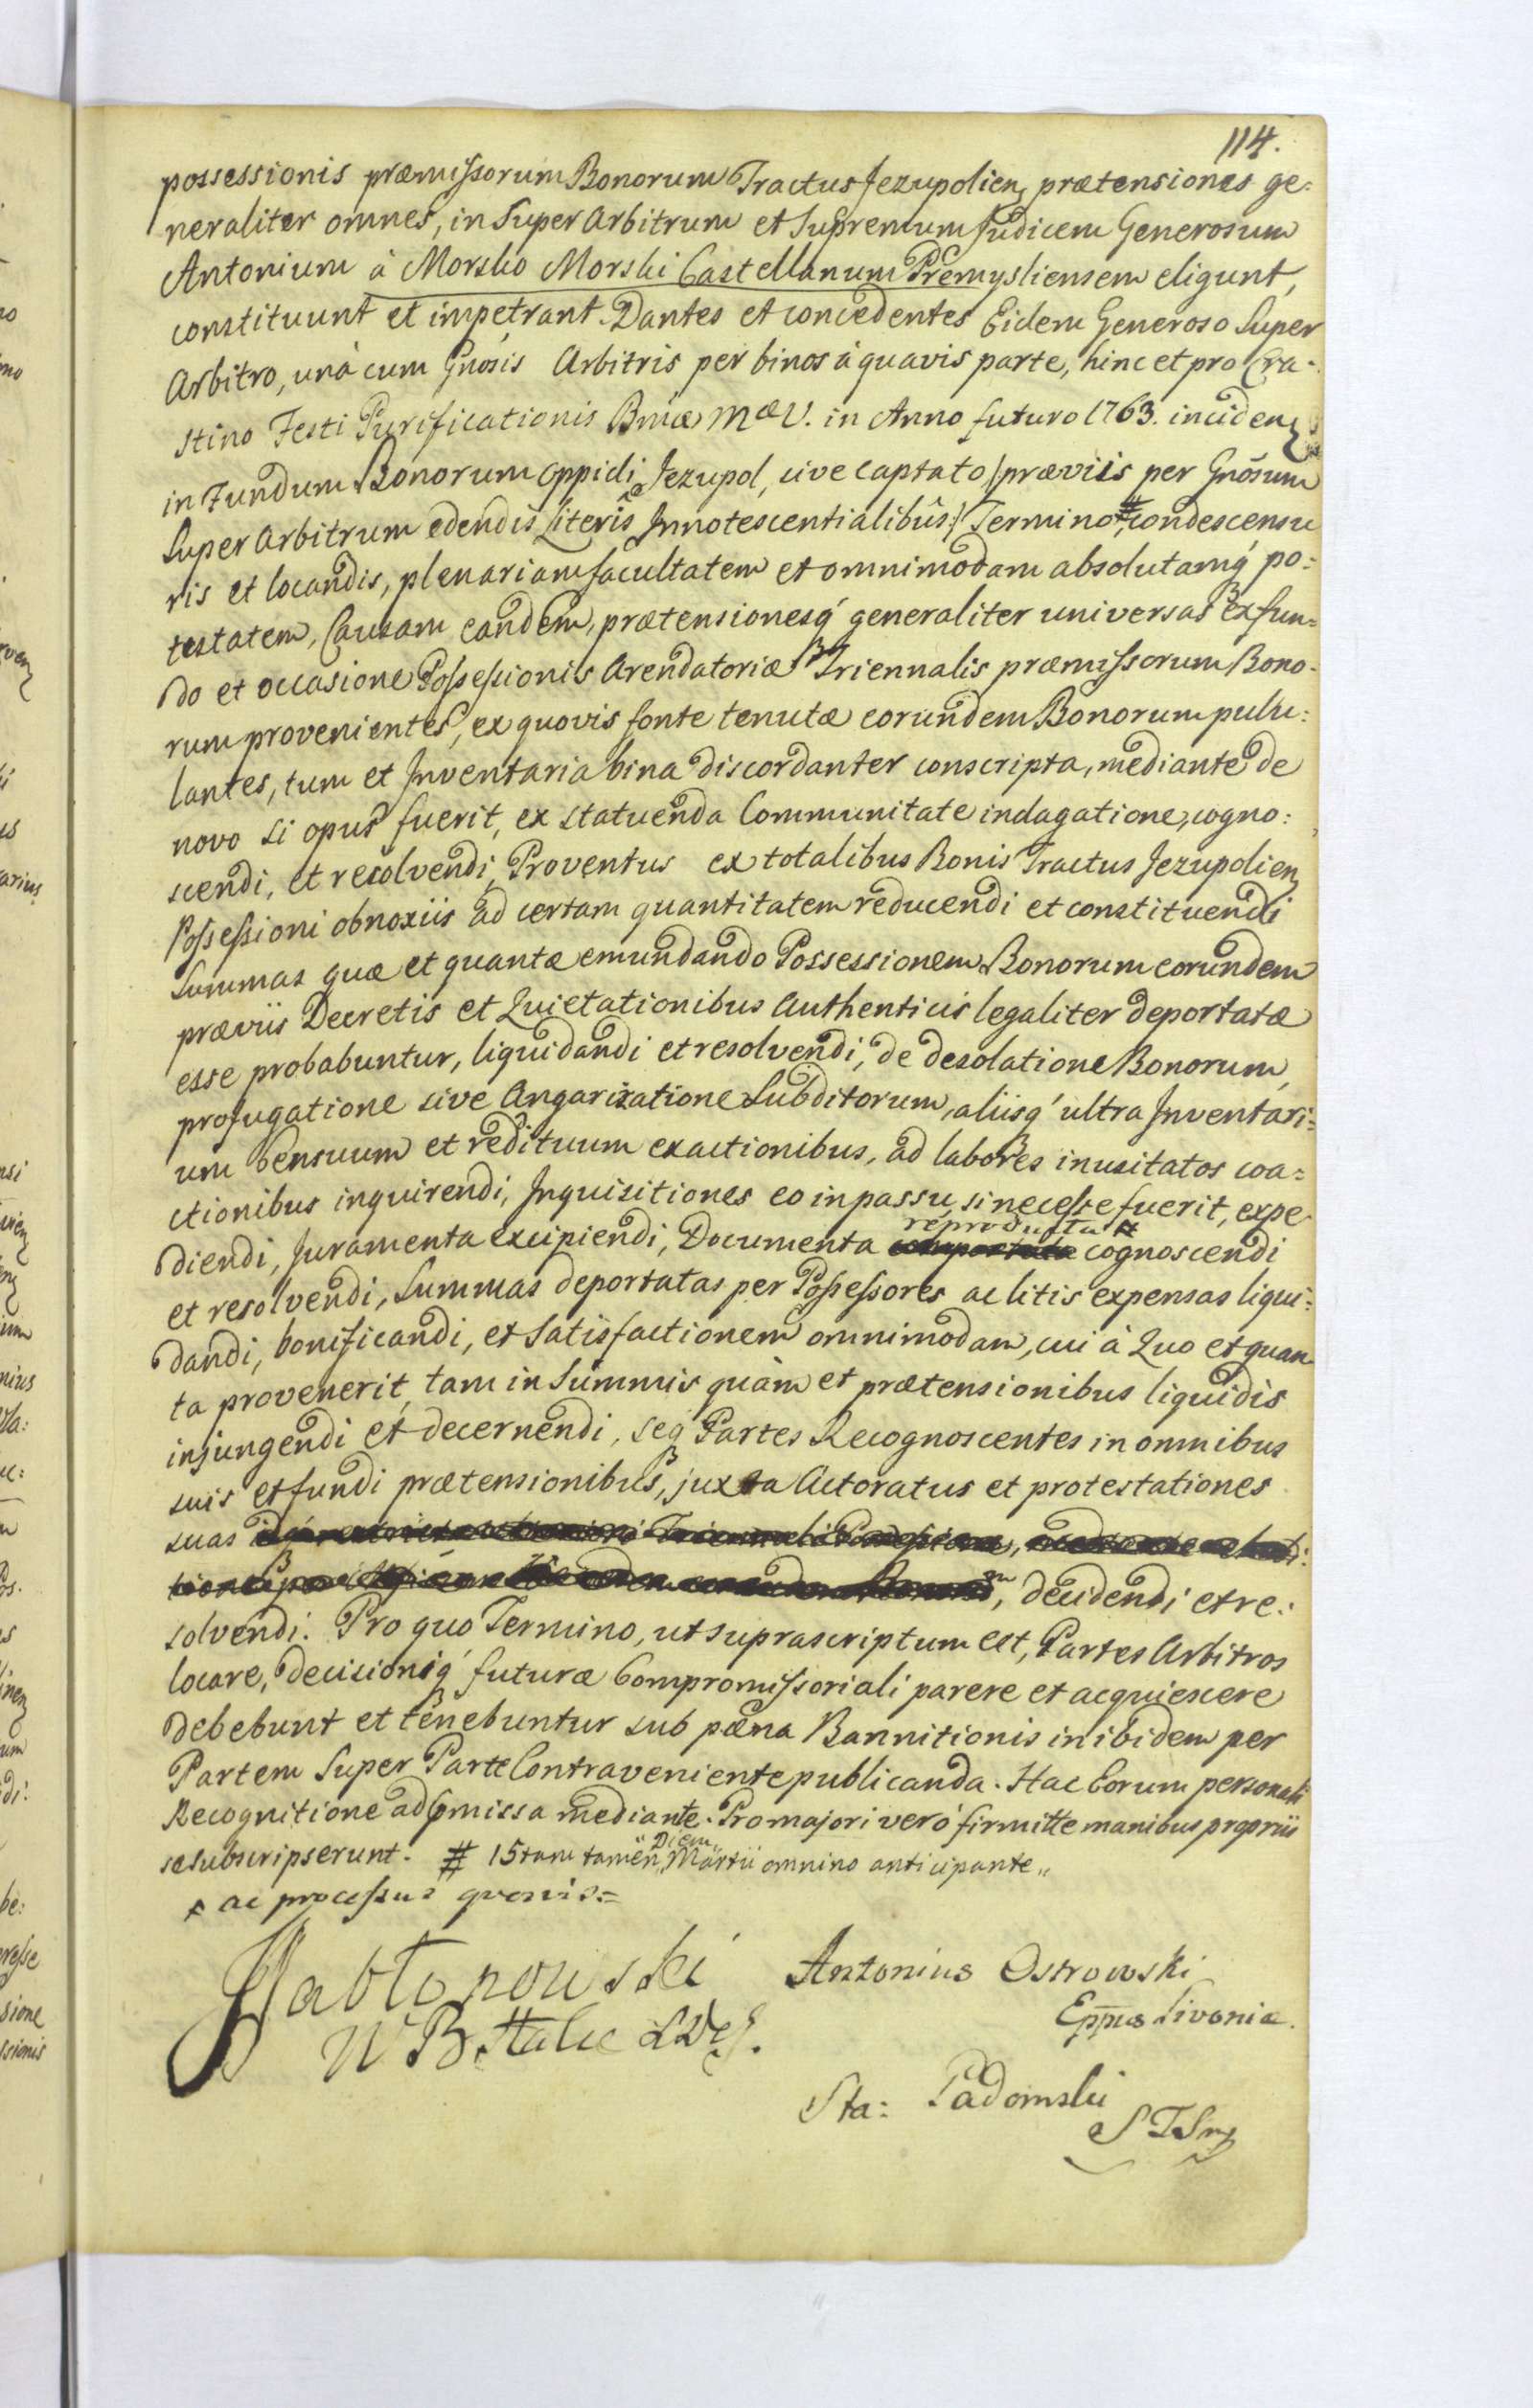 114.
possessionis præmissorum Bonorum Tractus Jezupolien, prætensiones ge=
neraliter omnes, in Super Arbitrum et Supremum Judicem Generosum
Antonium à Morsko Morski Castellanum Premysliensem eligunt,
constituunt et impetrant. Dantes et concedentes Eidem Generoso Super
Arbitro, unà cum Gnosis Arbitris per binos à quavis parte, hinc et pro Cra-
stino Festi Purificationis Bmæ Mæ V. in Anno futuro 1763. inciden
in Fundum Bonorum oppidi Jezupol, sive captato /præviis per Gnosum
Super Arbitrum edendis Literis Innotescentialibus:/ Termino # condescensu
ris et locandis, plenariam facultatem et omnimodam absolutamq́ po=
testatem, Causam eandem, prætensionesq́ generaliter universas ex fun=
do et occasione Possessionis Arendatoriæ Triennalis præmissorum Bono-
rum provenientes, ex quovis fonte tenutæ eorundem Bonorum pulu=
lantes, tum et Inventaria bina discordanter conscripta, mediante de
novo si opus fuerit, ex statuenda Communitate indagatione, cogno=
scendi, et resolvendi, Proventus ex totalibus Bonis Tractus Jezupolien
Possessioni obnoxiis ad certam quantitatem reducendi et constituendi
Summas quæ et quantæ emundando Possessionem Bonorum eorundem
præviis Decretis et Quietationibus Authenticis legaliter deportatæ
esse probabuntur, liquidandi et resolvendi, de desolatione Bonorum,
profugatione sive Angarizatione Subditorum, aliisq́ ultra Inventari=
um Censuum et redituum exactionibus, ad labores inusitatos coa=
ctionibus inquirendi, Inquisitiones eo in passu, si necesse fuerit, expe
reproducta x
diendi, Juramenta excipiendi, Documenta cognoscendi
et resolvendi, Summas deportatas per Possessores ac litis expensas liqui=
dandi, bonificandi, et Satisfactionem omnimodam, cui à Quo et quan
ta provenerit, tam in Summis quàm et prætensionibus liquidis
injungendi et decernendi, seq Partes Recognoscentes in omnibus
suis et fundi prætensionibus, juxta Actoratus et protestationes
suas
, decidendi et re=
solvendi. Pro quo Termino, ut suprascriptum est, Partes Arbitros
locare, decisioniq́ futuræ Compromissoriali parere et acquiescere
debebunt et tenebuntur sub pæna Bannitionis in ibidem per
Partem Super Parte Contraveniente publicanda. Hac Eorum personali
Recognitione ad pmissa mediante. Pro majori verò firmitte manibus propriis
se subscripserunt. # 15tam tamen Diem Martii omnino anticipante
x ac processus quovis=
Jabłonowski
W B
Antonius Ostrowski
Eppus Livoniæ.
Sta: Padomski